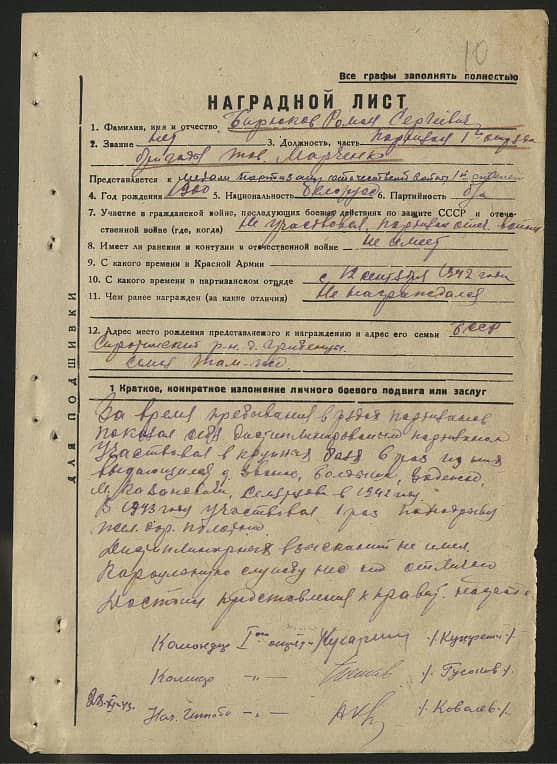 10
Все графы заполнять полностью
НАГРАДНОЙ ЛИСТ
1. Фамилия, имя и отчество Бирюков Роман Сергеевич
2. Звание нет 3. Должность, часть партизан 1го отряда
бригады тов. Марченко
Представляется к медали партизану отечественной войны 1й степени
4. Год рождения 1900 5. Национальность белорусс 6. Партийность б/п
7. Участие в гражданской войне, последующих боевых действиях по защите СССР и отече-
ственной войне (где, когда) Не участвовал, партизан отеч. войны
8. Имеет ли ранения и контузии в отечественной войне не имеет
9. С какого времени в Красной Армии
10. С какого времени в партизанском отряде с 12 сентября 1942 года
11. Чем ранее награжден (за какие отличия) Не награждался
12. Адрес место рождения представляемого к награждению и адрес его семьи БССР
Сиротинский р-н. д.
семья там-же.
ДЛЯ ПОДШИВКИ
1 Краткое, конкретное изложение личного боевого подвига или заслуг
За время пребывания в рядах партизанов
показал себя дисциплинированным партизаном
Участвовал в крупных боях 6 раз из них
выдающиеся д.
м. в 1942 году.
В 1943 году участвовал 1 раз по подрыву
жел. дор. полотна.
Дисциплинарных взысканий не имел.
Караульную службу нес на отлично
Достоин представления к правит. награде
Командир 1го отряда
Комиссар -„- /. Гусаков /.
23-XI-43. Нач. штаба -„- /. Ковалев /.